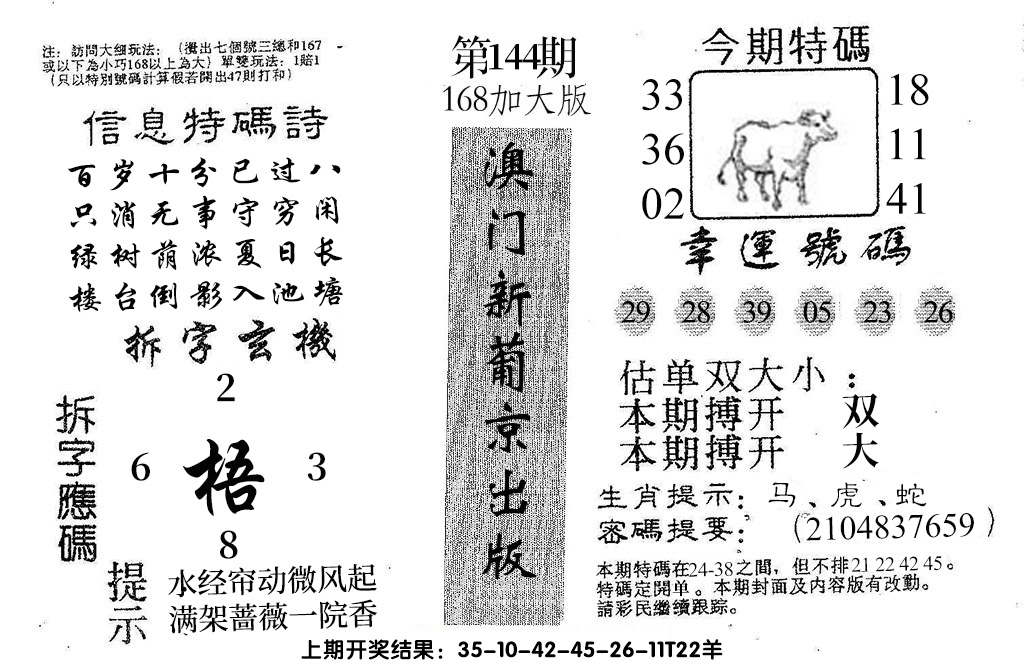 注：訪問大细玩法：（攪出七個號三總和167
或以下為小巧168以上為大）單雙玩法：1賠1
（只以特別號碼計算假若開出47則打和）
信息特碼詩
百岁十分已过八
只消无事守穷闲
绿树荫浓夏日长
楼台倒影入池塘
拆字玄機
拆字應碼
2
6 梧 3
8
提示
水经帘动微风起
满架蔷薇一院香
第144期
168加大版
澳门新葡京出版
今期特碼
33 18
36 11
02 41
幸運號碼
29 28 39 05 23 26
估单双大小：
本期搏开 双
本期搏开 大
生肖提示：马、虎、蛇
密碼提要：（2104837659）
本期特碼在24-38之間，但不排21 22 42 45。
特碼定開单。本期封面及内容版有改動。
請彩民繼續跟踪。
上期开奖结果：35-10-42-45-26-11T22羊